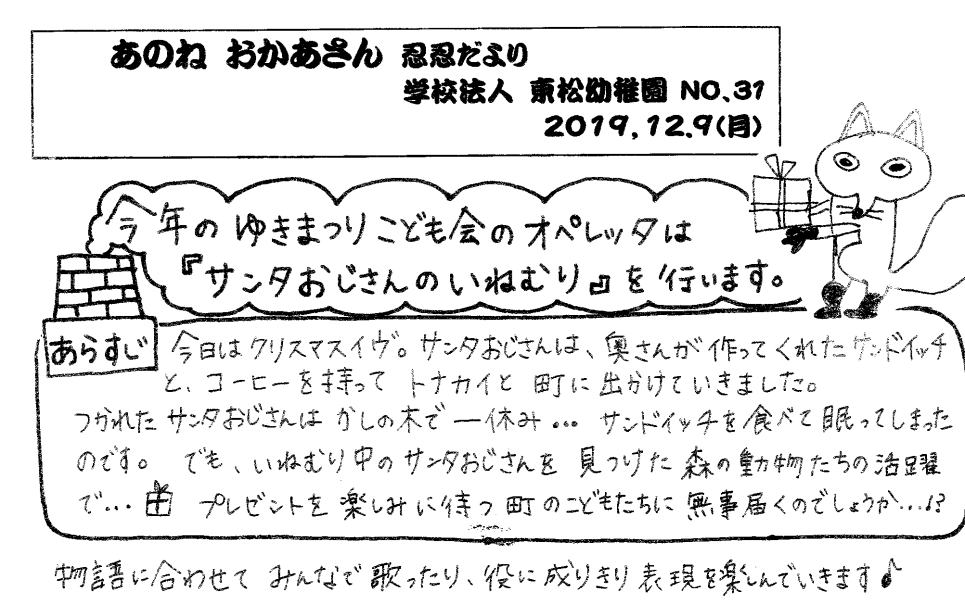 あのね おかあさん 忍忍だより
学校法人 東松幼稚園 NO.31
2019,12.9(月)
今年の ゆきまつりこども会のオペレッタは
『サンタおじさんのいねむり』を行います。
あらすじ
今日はクリスマスイヴ。サンタおじさんは、奥さんが作ってくれたサンドイッチ
と、コーヒーを持って トナカイと 町に出かけていきました。
つかれた サンタおじさんは かしの木で 一休み… サンドイッチを食べて眠ってしまった
のです。 でも、いねむり中のサンタおじさんを 見つけた 森の動物たちの活躍
で… プレゼントを楽しみに待つ町のこどもたちに 無事届くのでしょうか…!?
物語に合わせて みんなで歌ったり、役に成りきり表現を楽しんでいきます♪